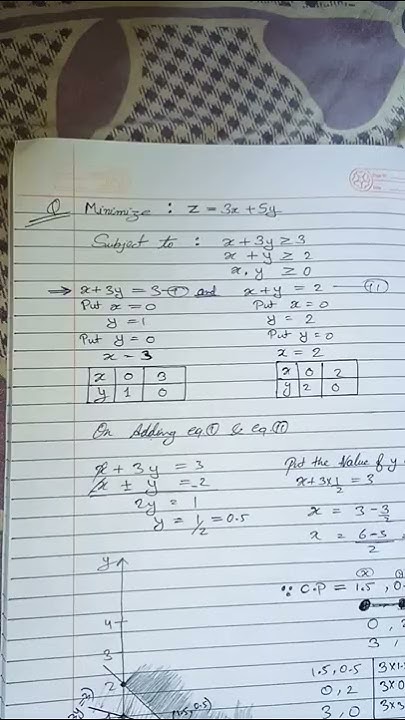 Q Minimize : Z = 3x + 5y
Subject to : x + 3y ≥ 3
x + y ≥ 2
x, y ≥ 0
⇒ x + 3y = 3 - (I) and x + y = 2 - (II)
Put x = 0 Put x = 0
y = 1 y = 2
Put y = 0 Put y = 0
x = 3 x = 2
x 0 3 x 0 2
y 1 0 y 2 0
On Adding eq (I) & eq (II)
x + 3y = 3 Put the Value of y
x ± y = -2 x + 3 × 1/2 = 3
2y = 1 x = 3 - 3/2
y = 1/2 = 0.5 x = 6-3/2
y (x)
∵ C.P = 1.5, 0.
4 0, 2
3 3,
2 1.5, 0.5 3×1.
(1.5, 0.5) 0, 2 3×0
3, 0 3×3